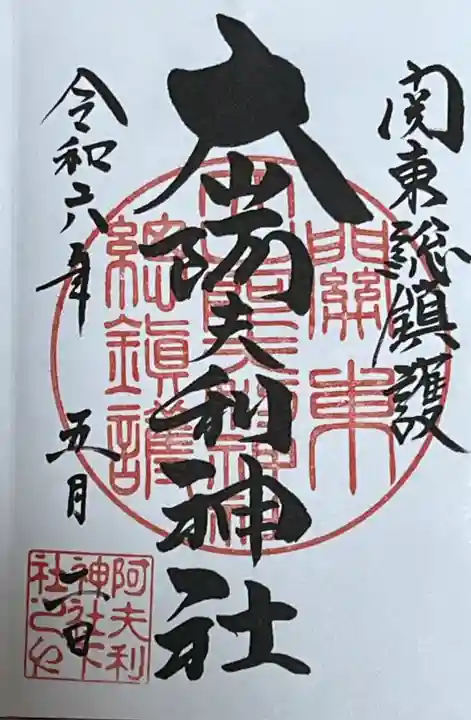 関東総鎮護
大山阿夫利神社
令和六年 五月 日
關東
總鎮護
阿夫利
神社下
社